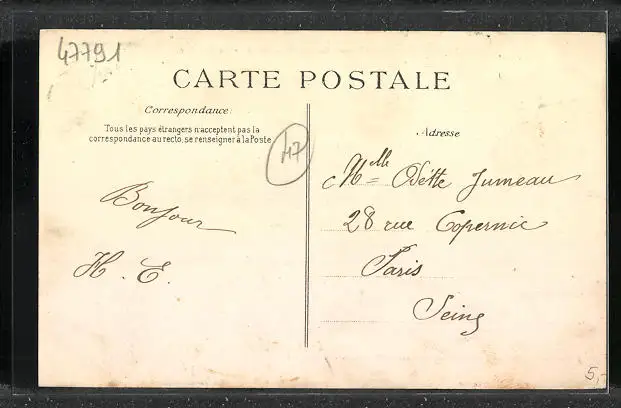 47791
CARTE POSTALE
Correspondance
Tous les pays étrangers n'acceptent pas la
correspondance au recto, se renseigner à la Poste
47
Bonjour
H. E.
Adresse
Mlle Odette Jumeau
28 rue Copernic
Paris
Seine
5,